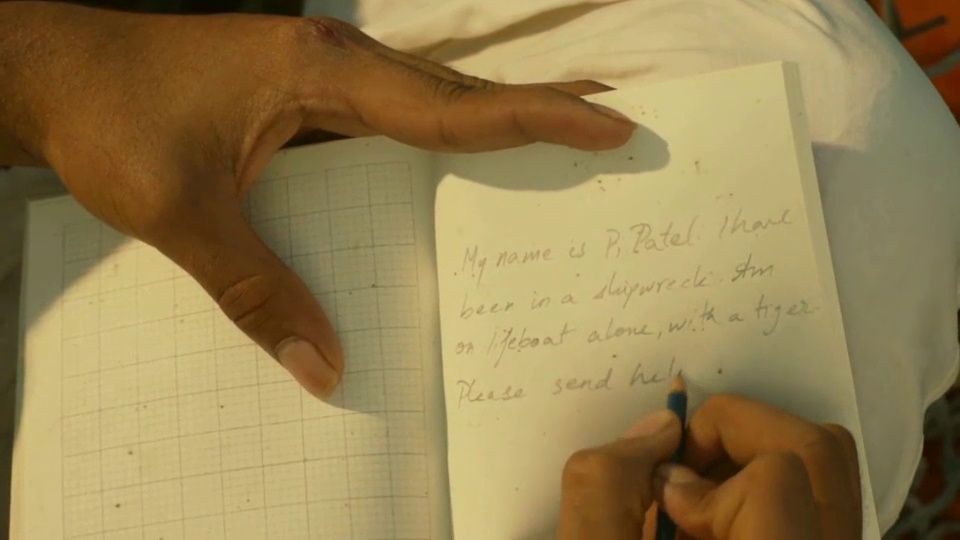 My name is Pi Patel. I have
been in a shipwreck. I Am
on lifeboat alone, with a tiger.
Please send hel